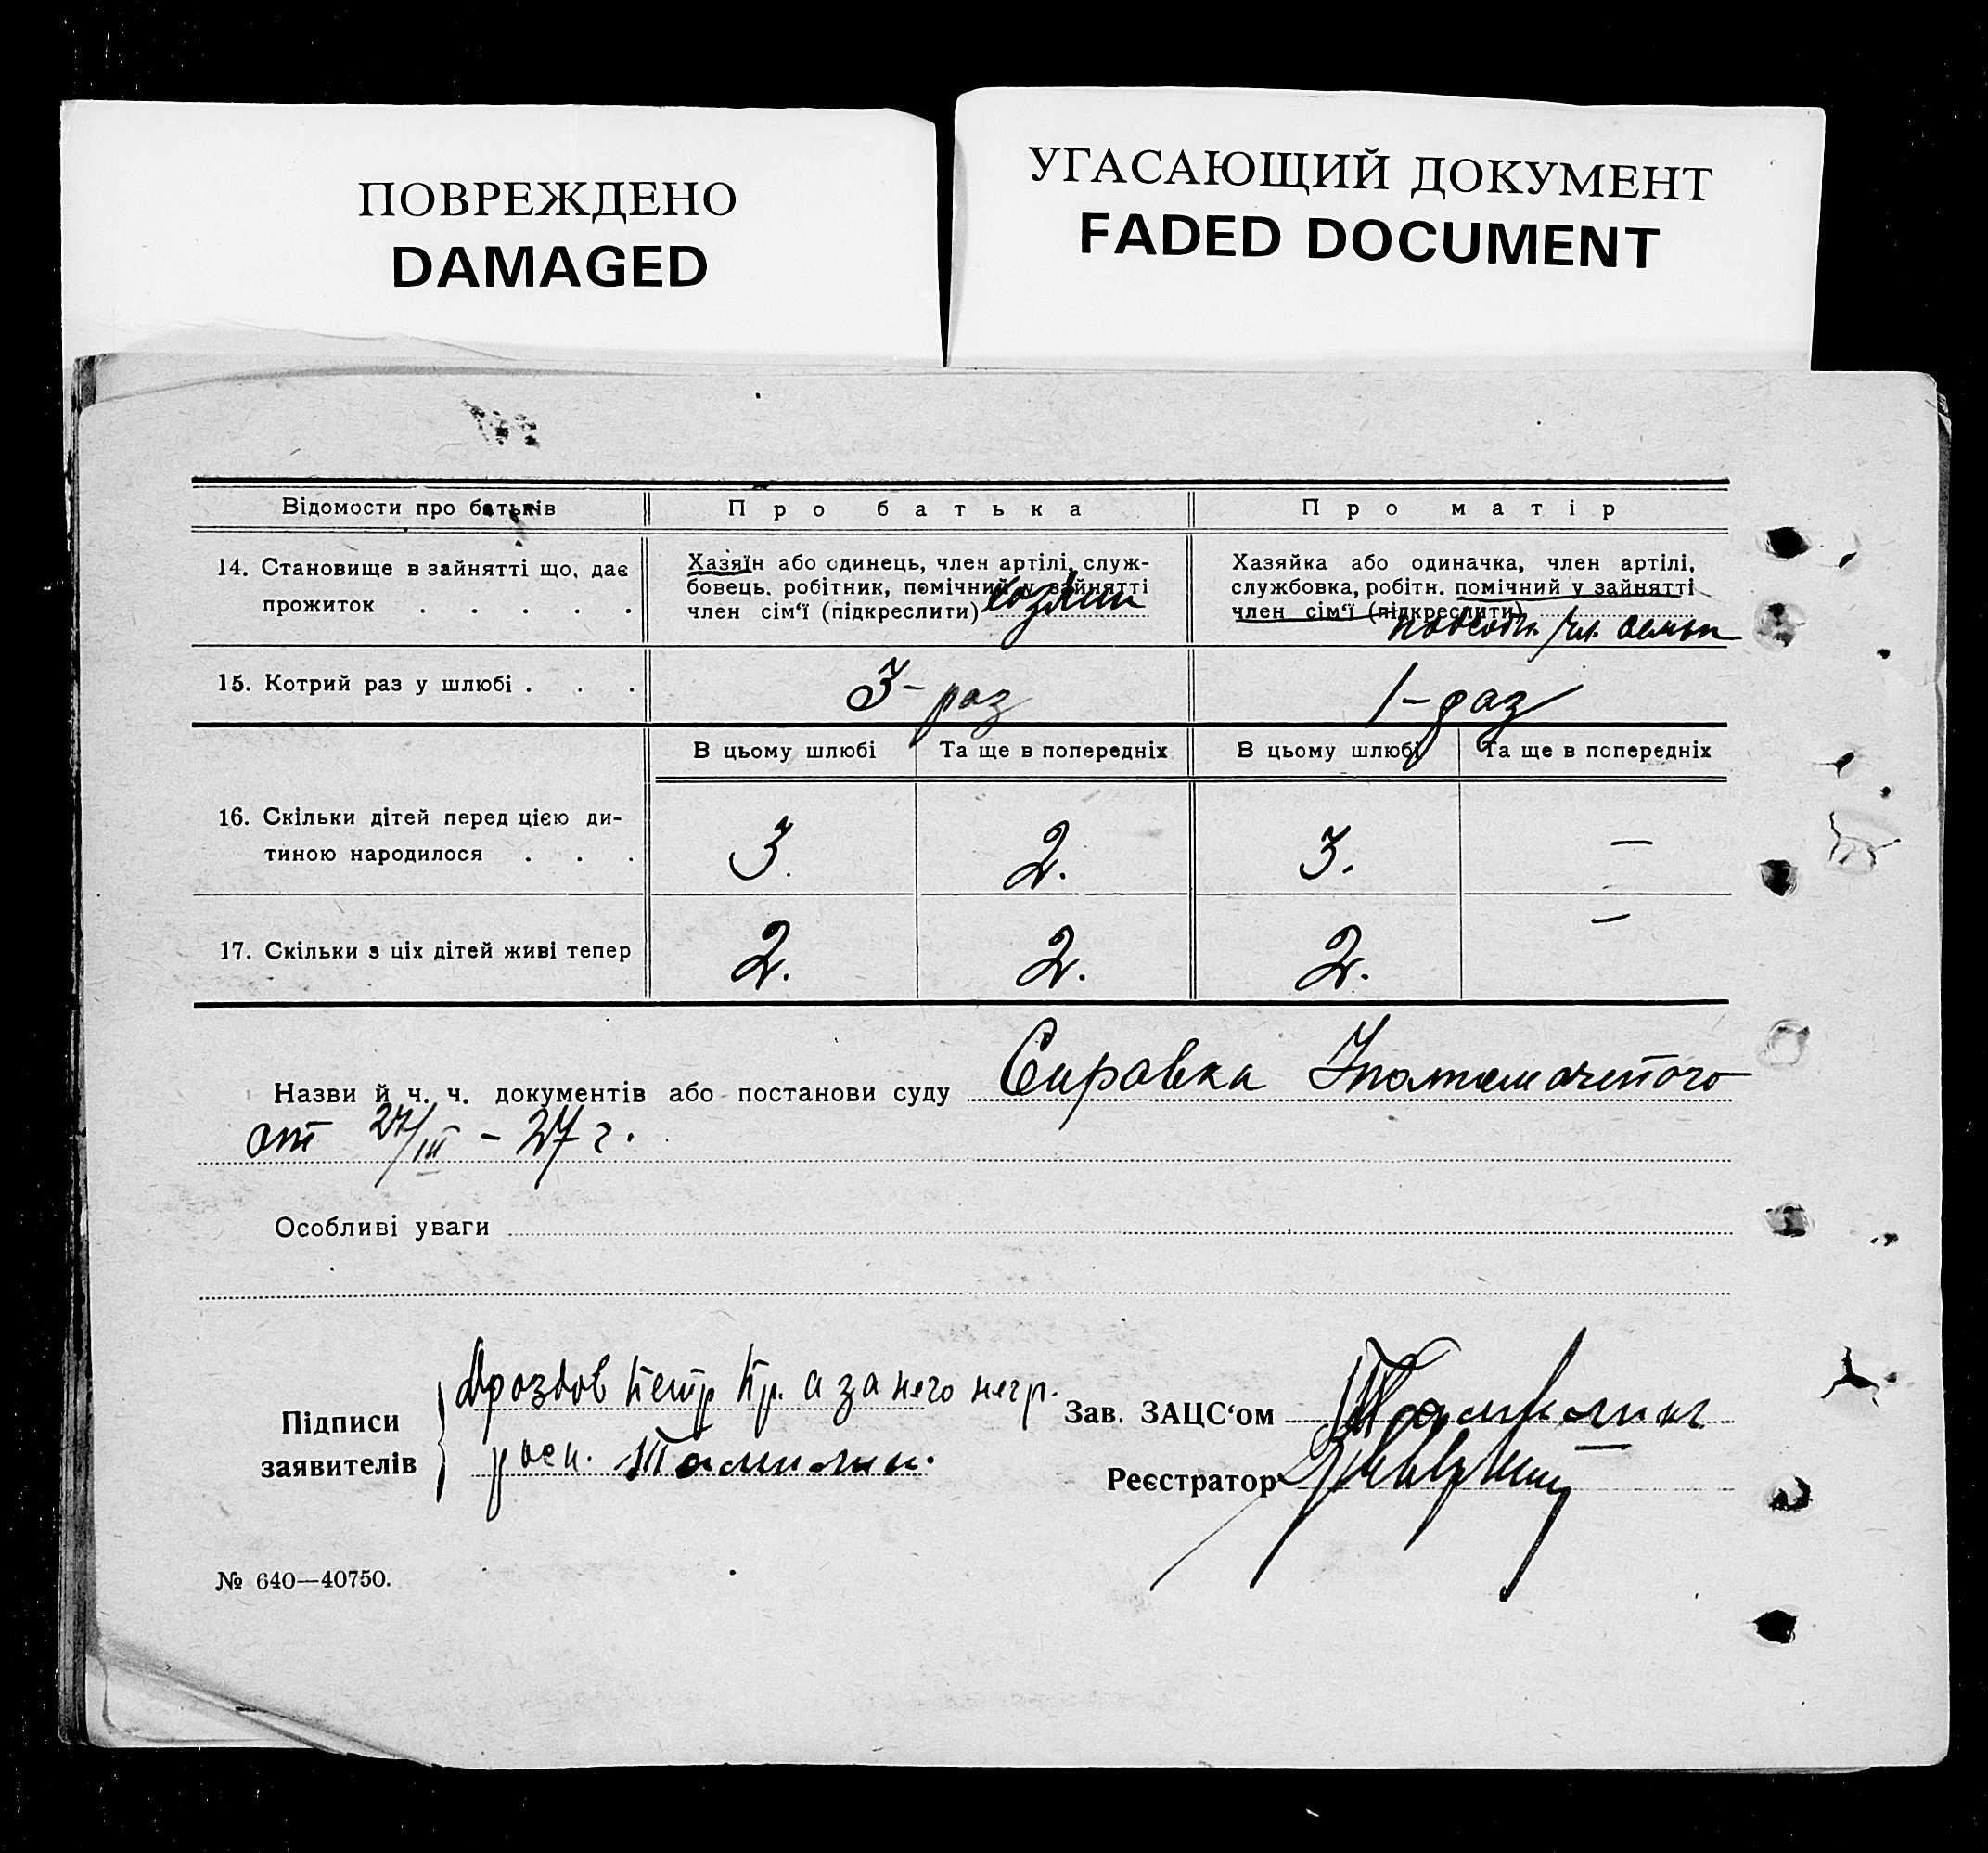 ПОВРЕЖДЕНО
DAMAGED
УГАСАЮЩИЙ ДОКУМЕНТ
FADED DOCUMENT
Відомости про батьків
Про батька
Про матір
14. Становище в зайнятті що, дає
прожиток . . . . .
Хазяїн або одинець, член артілі, служ-
бовець, робітник, помічний у зайнятті
член сім'ї (підкреслити) хозяин
Хазяйка або одиначка, член артілі,
службовка, робітн. помічний у зайнятті
член сім'ї (підкреслити)
чл. семьи
15. Котрий раз у шлюбі . . .
3 - раз
1 - раз
В цьому шлюбі
Та ще в попередніх
В цьому шлюбі
Та ще в попередніх
16. Скільки дітей перед цією ди-
тиною народилося . . .
3.
2.
3.
—
17. Скільки з ціх дітей живі тепер
2.
2.
2.
—
Назви й ч. ч. документів або постанови суду Справка
от 27/III - 27 г.
Особливі уваги
Підписи
заявителів
Дроздов Петр Кр. а за него негр.
расп.
Зав. ЗАЦС'ом
Реєстратор
№ 640—40750.